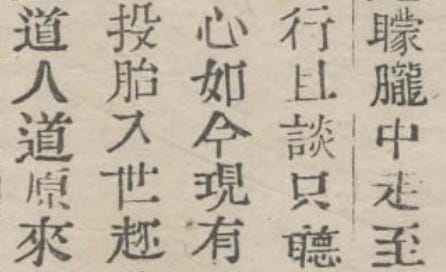 矇朧中走至
行且談只聽
心如今現有
投胎入世趂
道人道原來